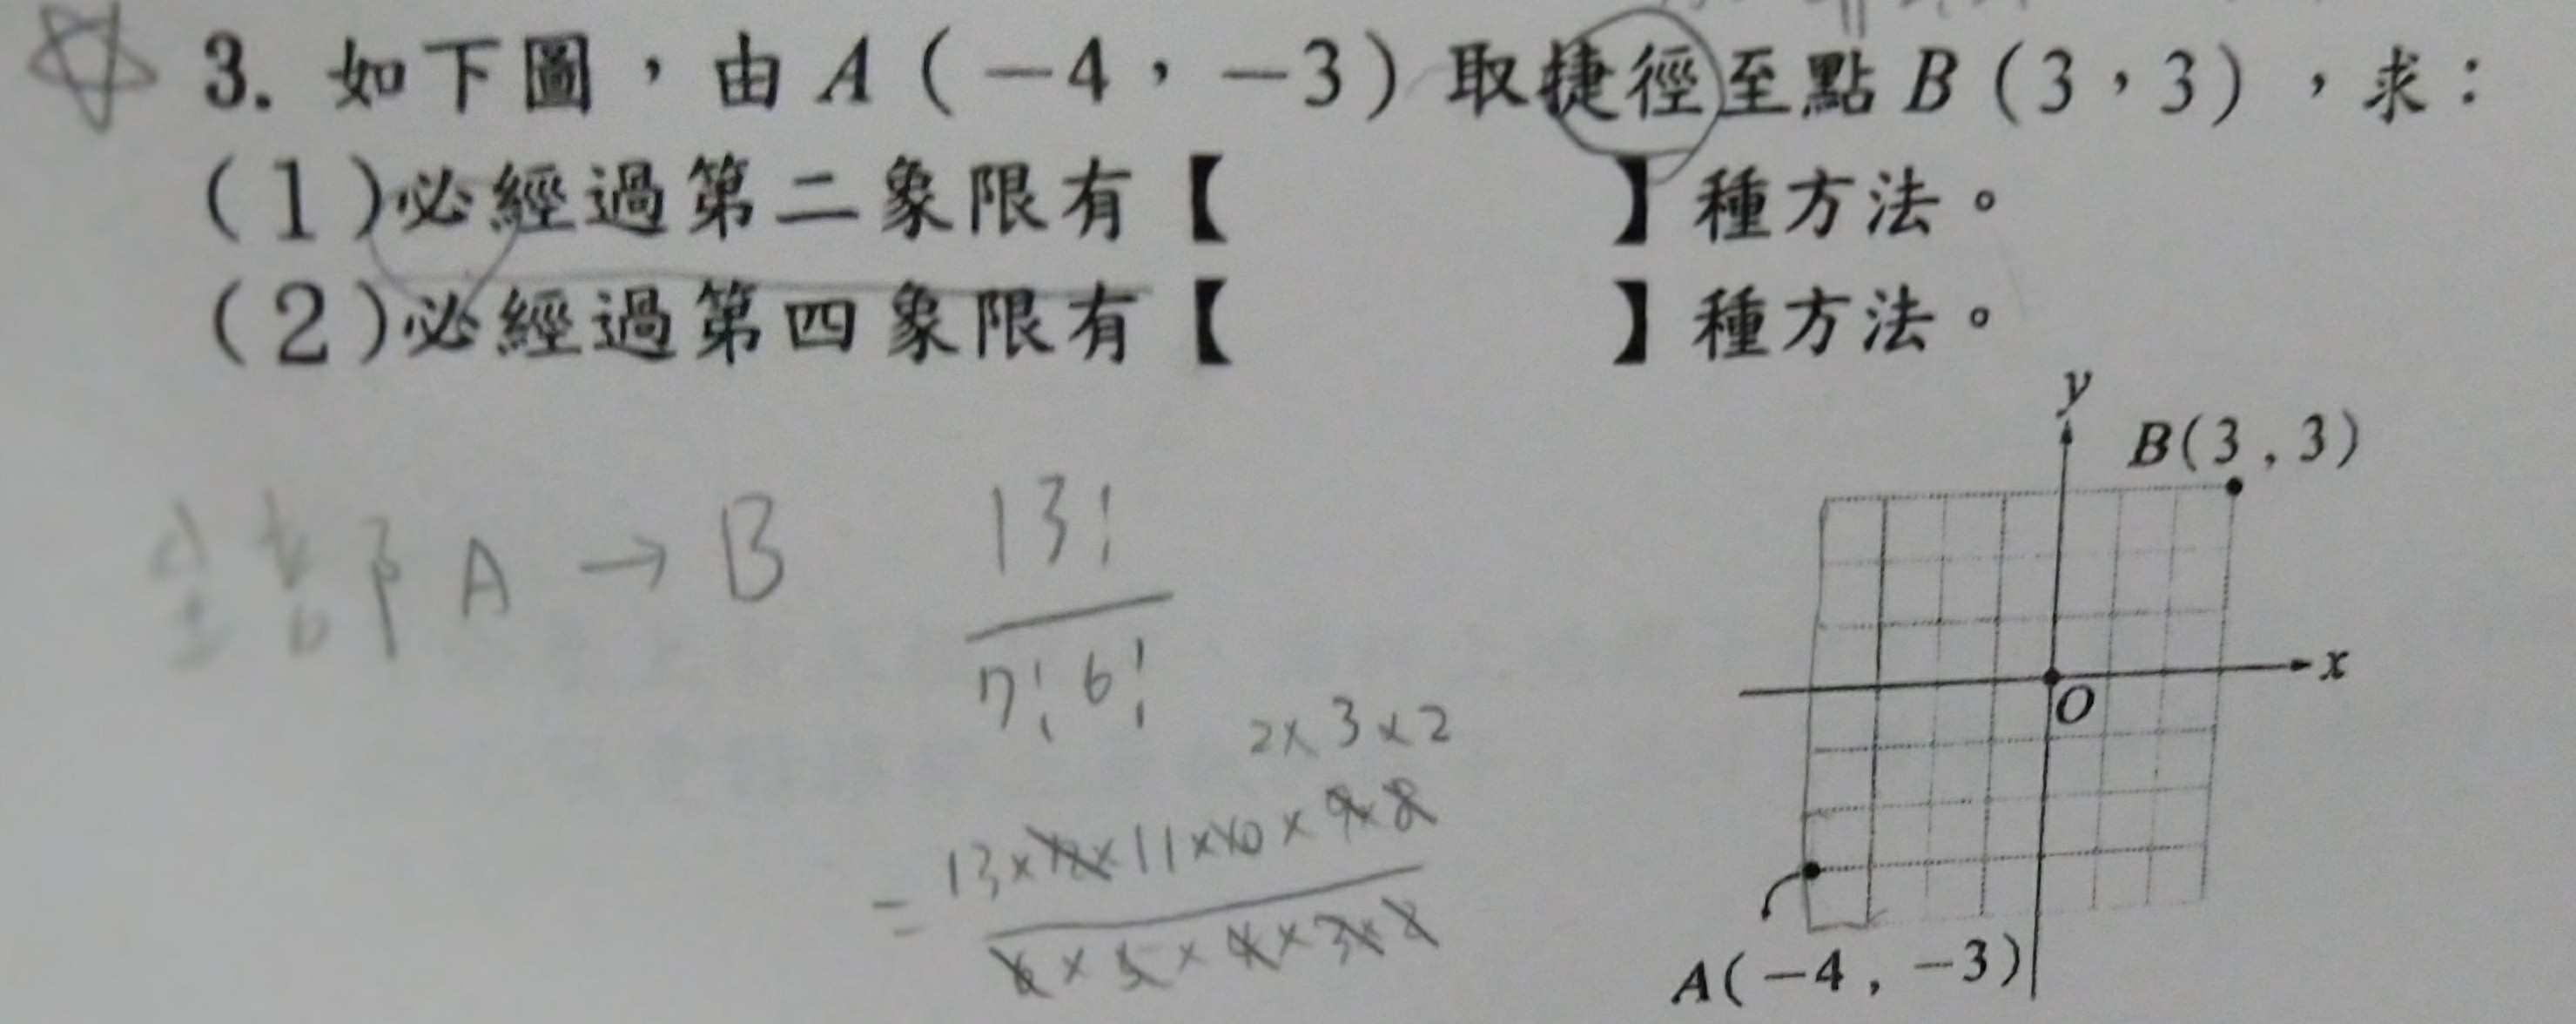 3. 如下圖，由 A（−4，−3）取捷徑至點 B（3，3），求：
（1）必經過第二象限有【　　　】種方法。
（2）必經過第四象限有【　　　】種方法。
全部 A → B
13!
7! 6!
2×3×2
= 13×12×11×10×9×8
6×5×4×3×2
y
B(3 , 3)
x
O
A(−4 , −3)